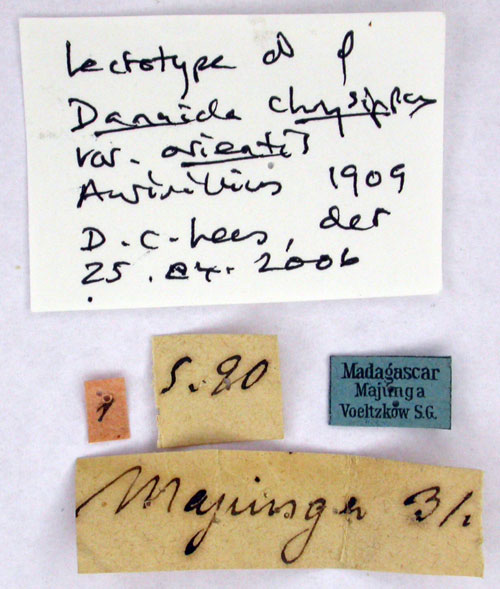 Lectotype of ♀
Danaida chrysippus
var. orientis
Aurivillius 1909
D.C. Lees, det
25.04.2006
1
S. 90
Madagascar
Majunga
Voeltzkow S.G.
Majunga 3/.